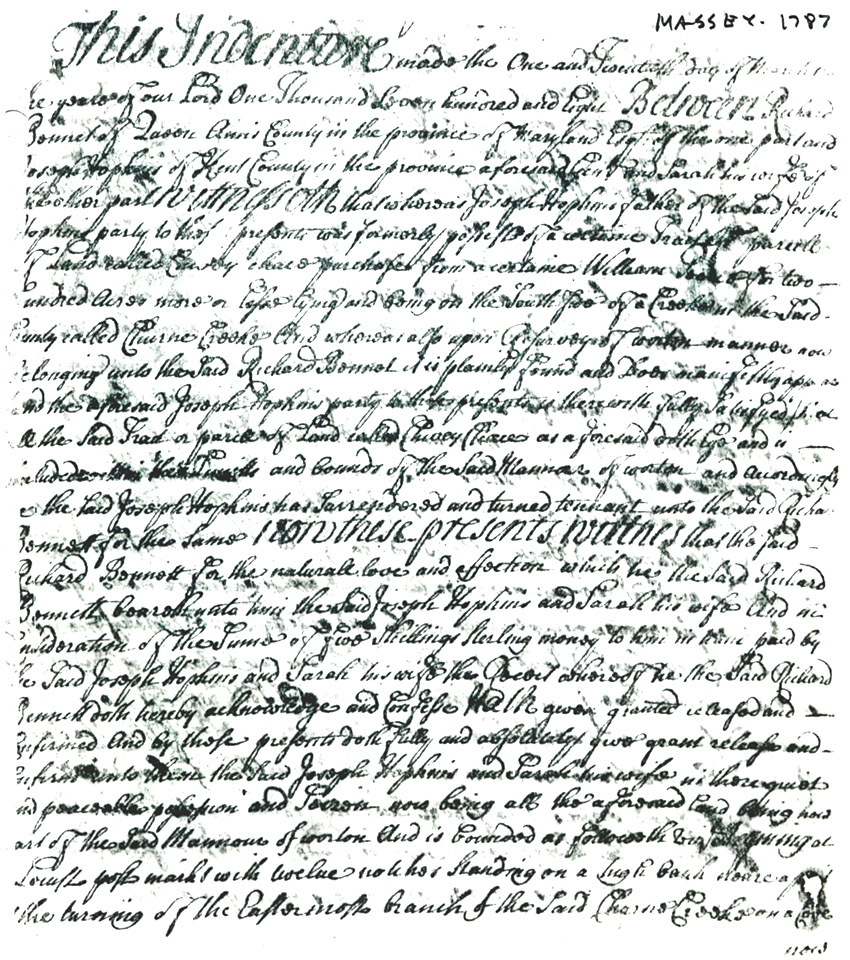 MASSEY. 1787
This Indenture made the One and Twentieth day of March
he yeare of our Lord One Thousand Seven hundred and Eight Between Richard
Bennet of Queen Anns County in the province of Maryland Esqr. of the one part and
Joseph Hopkins of Kent County in the province aforesaid and Sarah his wife of
the other part Wittnesseth that whereas Joseph Hopkins father of the Said Joseph
Hopkins party to these presents was formerly possesst of a certaine Tract or parcell
of Land called Chivey chace purchase from a certaine William for two
hundred Acres more or lesse lying and being on the South side of a Creeke in the Said
County called Churne Creeke And whereas also upon Resurvey of worton mannor now
belonging unto the Said Richard Bennet it is plainly found and Does manifestly appear
and the aforesaid Joseph Hopkins party to these presents is therewith fully Satisfyed that
all the Said Tract or parcell of Land called Chivey Chace as aforesaid doth lye and is
included within the and bounds of the Said Mannor of worton and accordingly
the Said Joseph Hopkins has Surrendered and turned tennant unto the Said Richa
Bennett for the Same Now these presents wittness that the said
Richard Bennett for the naturall love and affection which he the Said Richard
Bennett beareth unto him the Said Joseph Hopkins and Sarah his wife And in
nsideration of the Sume of five Shillings Sterling money to him in hand paid by
he Said Joseph Hopkins and Sarah his wife the Receit whereof he the Said Richard
Bennett doth hereby acknowledge and Confesse Hath given granted released and
onfirmed And by these presents doth fully and absolutely give grant release and
onfirm unto them the Said Joseph Hopkins and Sarah his wife in there quiet
nd peaceable possession and now being all the aforesaid Land being now
art of the Said Mannour of worton And is bounded as followeth vizt Beginning at
Locust post marks with twelve notches Standing on a high bank neare a
the turning of the Eastermost branch of the Said Churne Creeke on a Cove
now